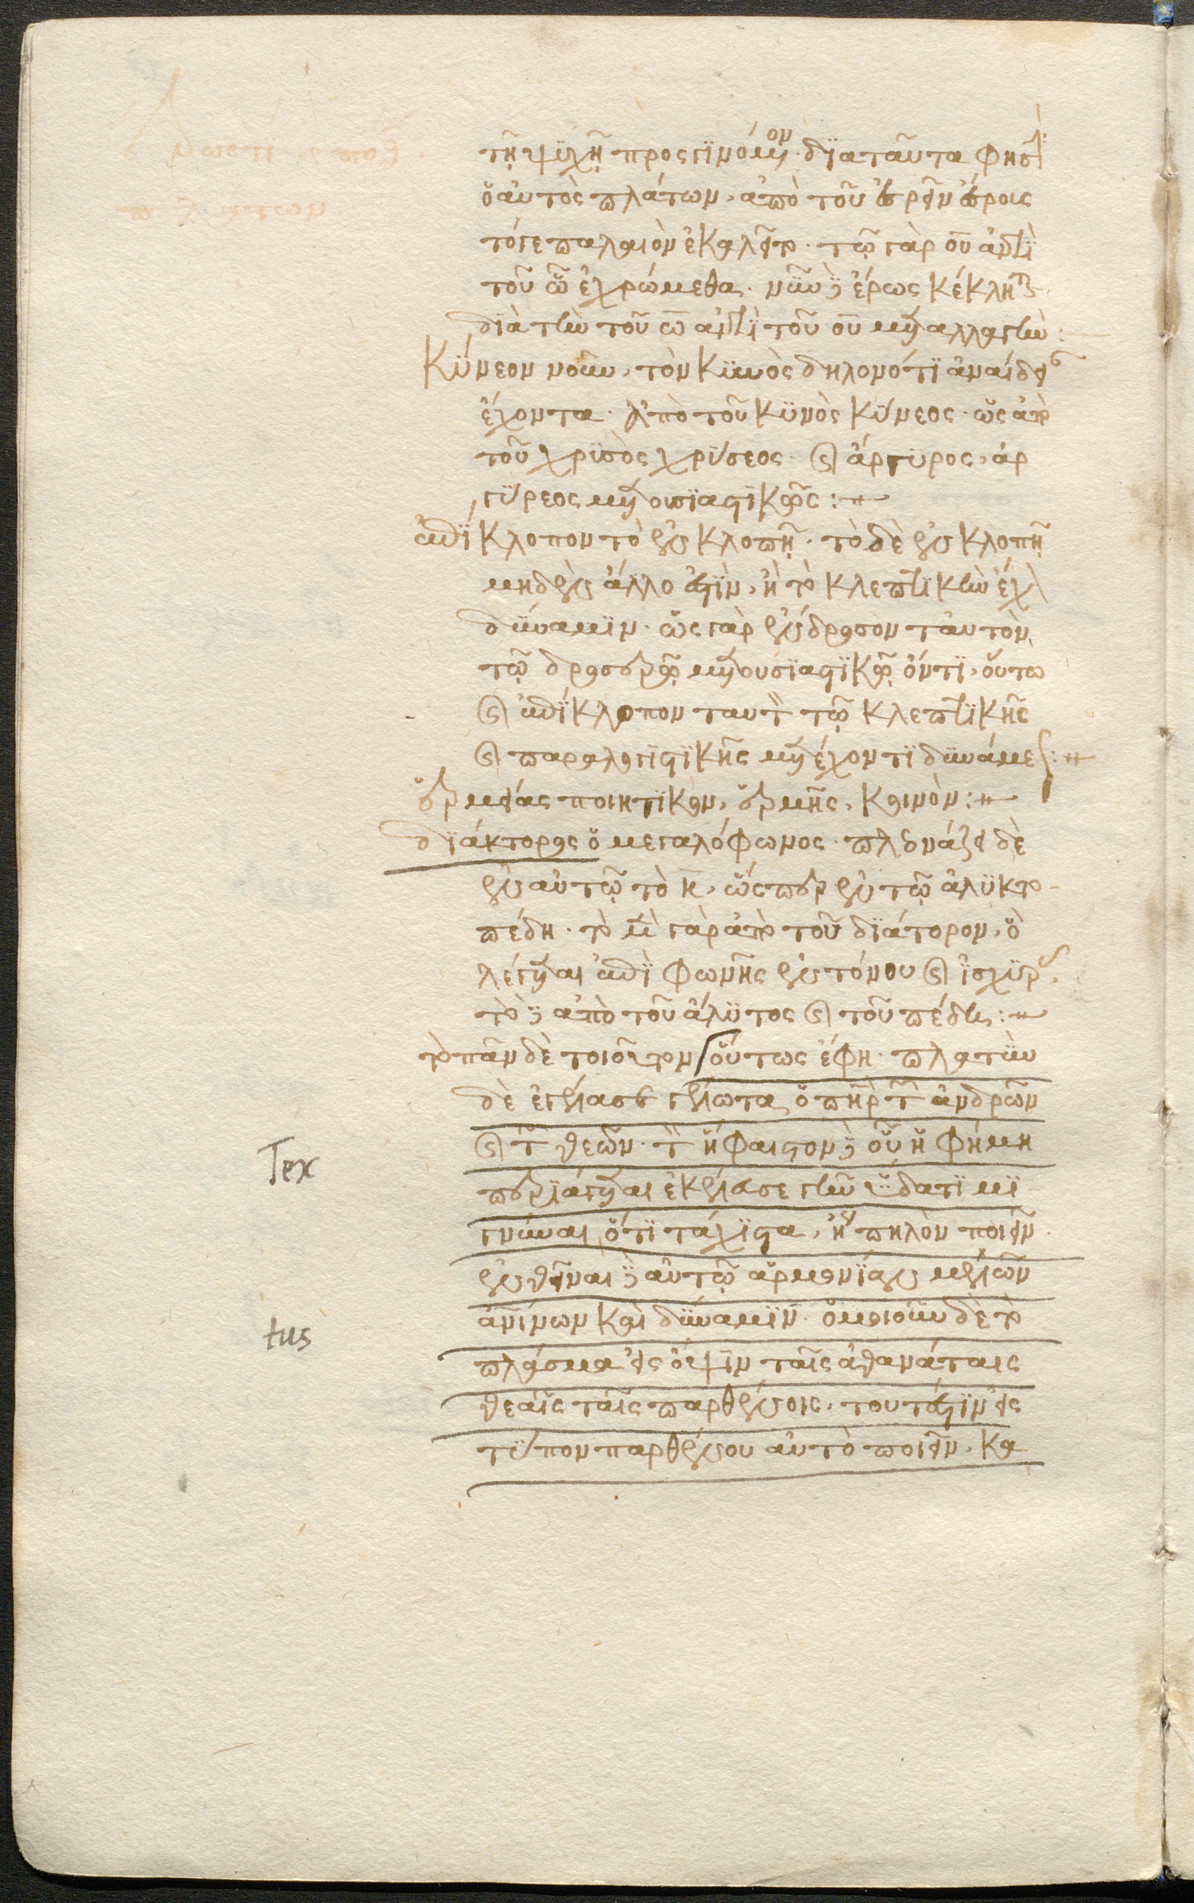 τῇ ψϋχῇ προςγϊνόμενον· δϊαταῦτα φησὶ
ὁ αὐτὸς πλάτων, ἀπὸ τοῦ εἴρειν εἴροις
τόγε παλαιὸν ἐκαλεῖτο· τῷ γὰρ οῦ ἀντὶ
τοῦ ω̄ ἐχρώμεθα· νῦν δὲ ἔρως κέκληται
διὰ τὴν τοῦ ω̄ ἀντὶ τοῦ οῦ μεταλλαγὴν:
Κύνεον νοῦν, τὸν κϋνὸς δηλονότϊ ἀναίδειαν
ἔχοντα· ἀπὸ τοῦ κϋνὸς κύνεος· ὡς ἀπὸ
τοῦ χρϋσὸς χρύσεος· καὶ ἄργϋρος, ἀρ
γύρεος μετουσϊαστϊκῶς:
ἐπίκλοπον τὸ ἐν κλοπῇ· τὸ δὲ ἐν κλοπῇ
μηδὲν ἄλλο ἐστὶν, ἢ τὸ κλεπτϊκὴν ἔχειν
δύναμϊν· ὡς γὰρ ἔνδροσον ταὐτὸν
τῷ δροσερῷ μετουσϊαστϊκῷ ὄντϊ, οὕτω
καὶ ἐπίκλοπον ταυτὸν τῷ κλεπτϊκῆς
καὶ παραλογϊστϊκῆς μετέχοντϊ δϋνάμεως:
ἑρμείας ποιητϊκὸν, ἑρμῆς, κοινὸν:
διάκτορος ὁ μεγαλόφωνος· πλεονάζει δὲ
ἐν αὐτῷ τὸ κ̄, ὥςπερ ἐν τῷ ἀλϋκτο
πέδη· τὸ μὲν γὰρ ἀπὸ τοῦ δϊάτορον, ὃ
λέγεται ἐπὶ φωνῆς ἐντόνου καὶ ἰσχϋρᾶς,
τὸ δὲ ἀπὸ τοῦ ἄλϋτος καὶ τοῦ πέδη:
τὸ πᾶν δὲ τοιοῦτον οὕτως ἔφη· πλατὺν
δὲ ἐγέλασε γέλωτα ὁ πατὴρ τῶν ἀνδρῶν
καὶ τῶν θεῶν· τὸν ἥφαιστον δὲ οὗ ἡ φήμη
περϊάγεται ἐκέλευσε γῆν ὕδατϊ μϊ
γνύναι ὅτϊ τάχϊστα, ἤτοι πηλὸν ποιεῖν
ἐνθεῖναι δὲ αὐτῷ ἁρμονίαν μελῶν
ἀνίνων καὶ δύναμϊν· ὁμοιοῦν δὲ τὸ
πλάσμα εἰς ὄψϊν ταῖς ἀθανάταις
θεαῖς ταῖς παρθένοις, τουτέστϊν εἰς
τύπον παρθένου αὐτὸ ποιεῖν, κα
Tex
tus